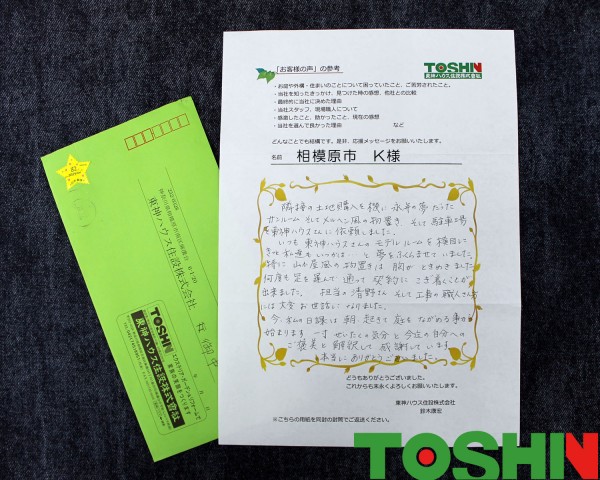 「お客様の声」の参考
TOSHIN
東神ハウス住設株式會社
・お庭や外構・住まいのことについて困っていたこと、ご苦労されたこと。
・当社を知ったきっかけ、見つけた時の感想、他社との比較
・最終的に当社に決めた理由
・当社スタッフ、現場職人について
・感激したこと、助かったこと、現在の感想
・当社を選んで良かった理由 など
どんなことでも結構です。是非、応援メッセージをお願いいたします。
名前 相模原市 K様
隣接の土地購入を機に永年の夢だった
サンルームそしてメルヘン風の物置き そして駐車場
を東神ハウスさんに依頼しました。
いつも東神ハウスさんのモデルルームを横目に
きっと私達もいつかは と夢をふくらませていました。
特に山小屋風の物置きは胸がときめきました。
何度も足を運んで通って契約にこぎ着くことが
出来ました。担当の清野さん そして工事の職人さん
には大変お世話になりました。
今、私の日課は朝起きて庭をながめる事
始まります 一寸ぜいたくな気分と今迄の自分への
ご褒美と解釈して感謝しています
本当にありがとうございました。
どうもありがとうございました。
これからも末永くよろしくお願いいたします。
東神ハウス住設株式会社
鈴木康宏
※こちらの用紙を同封の封筒でご返送ください。
東神ハウス住設株式会社
御中
TOSHIN
東神ハウス住設株式會社
TOSHIN